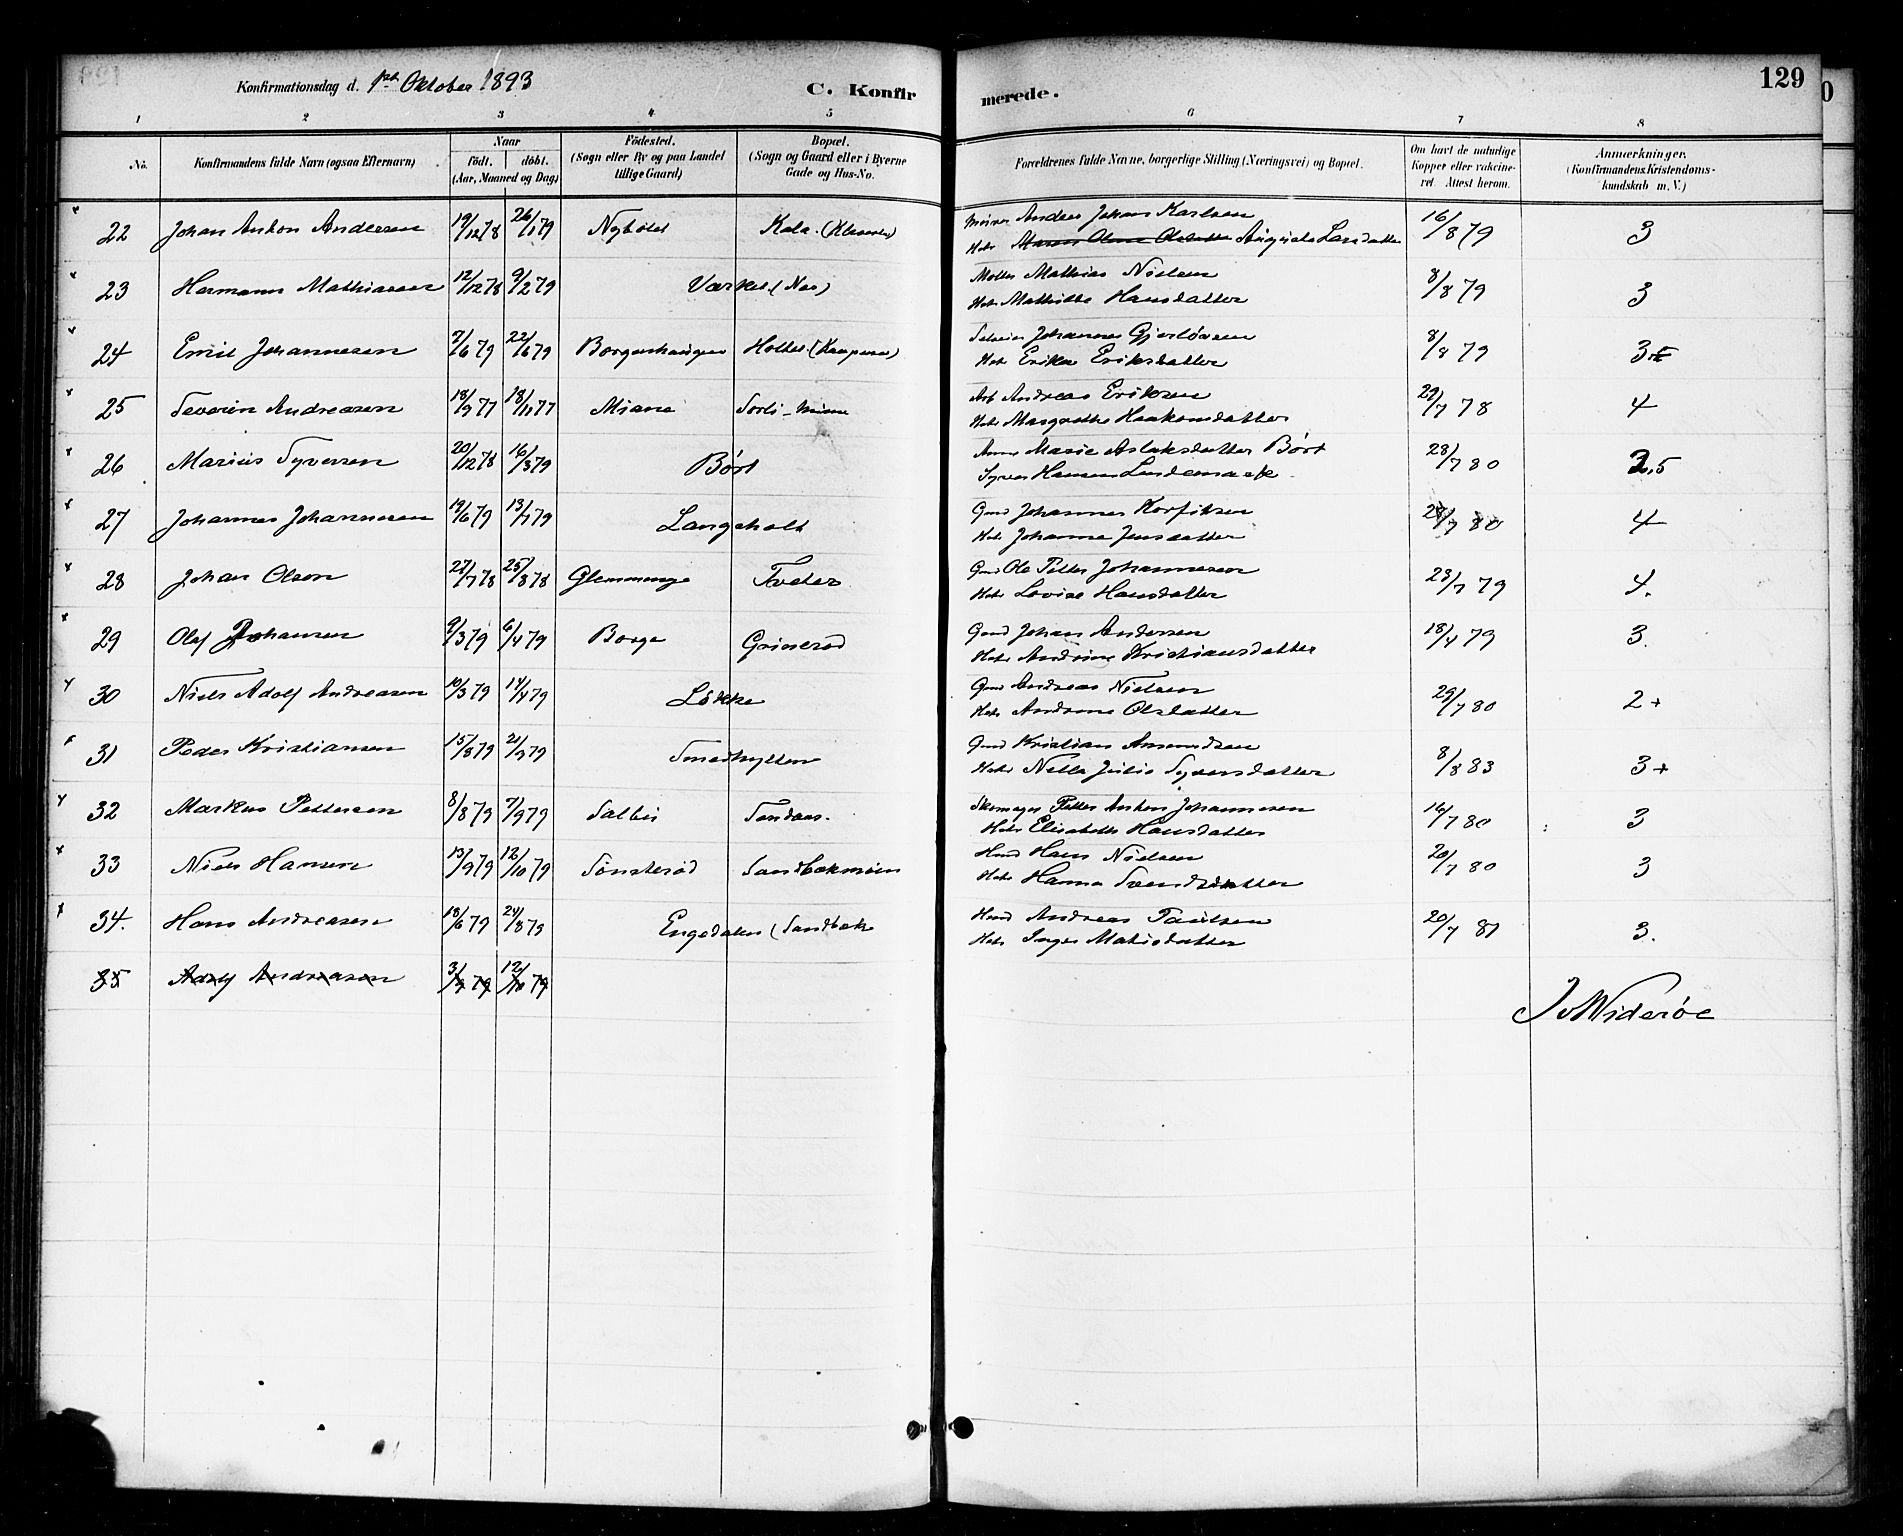 Konfirmationsdag d. 1ste Oktober 1893 C. Konfirmerede. 129
1 2 3 4 5 6 7 8
No. Konfirmandens fulde Navn (ogsaa Efternavn) Naar født. døbt. (Aar, Maaned og Dag) Fødested. (Sogn eller By og paa Landet tillige Gaard) Bopæl. (Sogn og Gaard eller i Byerne Gade og Hus-No. Forældrenes fulde Navne, borgerlige Stilling (Næringsvei) og Bopæl. Om havt de naturlige Kopper eller vakcineret. Attest herom. Anmærkninger. (Konfirmandens Kristendomskundskab m. V.)
22 Johan Anton Andersen 19/12 78 26/1 79 Nyhølet Kala (Klaveren) Murer Anders Johans Karlsen 16/8 79 3
Hst. Maren Olava Olsdatter Augusta Larsdatter
23 Hermann Mathiasen 12/12 78 9/2 79 Værket (Nes) Møller Mathias Nielsen 8/8 79 3
Hst. Mathilde Hansdatter
24 Emil Johannesen 7/6 79 22/6 79 Borgenhaugen Holtet Johannes Gjerløvsen 8/8 79
Hst. Erika Eriksdatter
25 Severin Andreasen 18/9 77 18/11 77 Miane Andreas Eriksen 29/7 78 4
Hst. Margrethe Haakonsdatter
26 Marius Syversen 20/12 78 16/3 79 Børt Anne Marie Aslaksdatter Børt 28/7 80 2,5
Syver Hansen Lundemark
27 Johannes Johannesen 19/6 79 13/7 79 Langeholt Gmd Johannes Korfitsen 28/7 80 4
Hst. Johanne Jensdatter
28 Johan Olson 27/7 78 25/8 78 Glemminge Tveter Gmd Ole Petter Johannesen 23/7 79 4.
Hst. Lovise Hansdatter
29 Olaf Johansen 9/3 79 6/4 79 Borge Grinerød Gmd Johan Andersen 18/4 79 3.
Hst. Andrine Kristiansdatter
30 Niels Adolf Andreasen 10/3 79 14/4 79 Løkke Gmd Andreas Nielsen 29/7 80 2+
Hst. Andrine Olsdatter
31 Peder Kristiansen 15/8 79 21/9 79 Smedhytten Gmd Kristian Amundsen 8/8 83 3+
Hst. Nella Julie Syversdatter
32 Markus Pettersen 8/8 79 7/9 79 Salbu Sandaas. Skomager Petter Anton Johannesen 16/7 80 3
Hst. Elisabeth Hansdatter
33 Niels Hansen 13/9 79 12/10 79 Sønsterød Sandbekmoien Hmd Hans Nielsen 20/7 80 3
Hst. Hanna Svendsdatter
34. Hans Andreasen 18/6 79 24/8 79 Engedalen (Sandbek Hmd Andreas Paulsen 20/7 81 3.
Hst. Inger Matisdatter
35 Adolf Andreasen 3/9 79 12/10 79
J. Widerøe